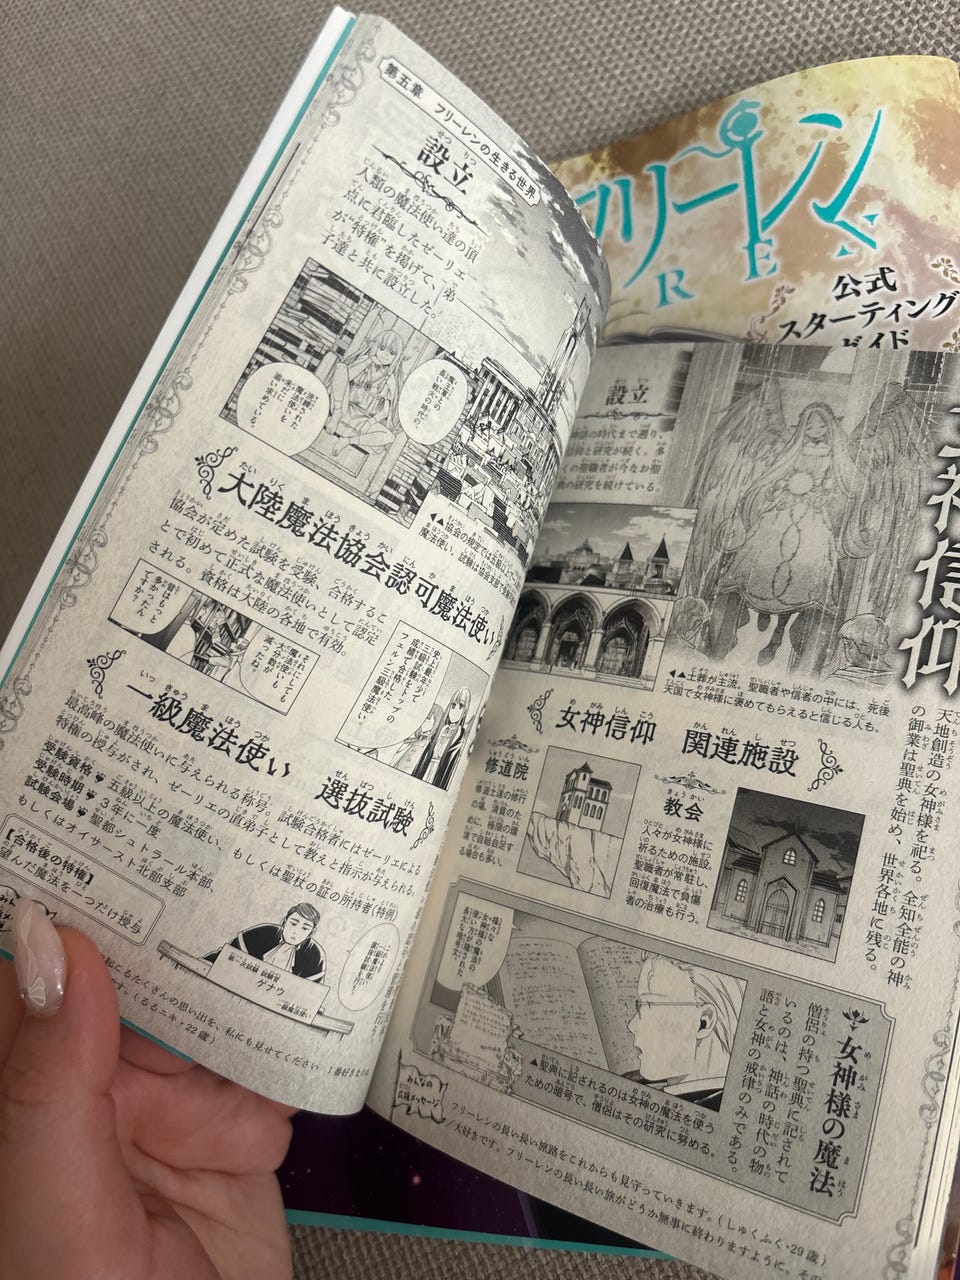 第五章 フリーレンの生きる世界
設立
人類の魔法使い達の頂
点に君臨したゼーリエ
が“特権”を掲げて、弟
子達と共に設立した。
魔族との
長い戦の時代の、
洗練された
魔法使いを
未だに
追い求めている。
大陸魔法協会認可魔法使い
協会が定めた試験を受験、合格するこ
とで初めて正式な魔法使いとして認定
される。資格は大陸の各地で有効。
昔はもっと
多かったん
ですか
それにしても
魔法使いも
大分数が
減ったね。
史上最年少で
三級試験をトップの
成績で合格した
フェルン三級魔法使い。
一級魔法使い 選抜試験
最高峰の魔法使いに与えられる称号。試験合格者にはゼーリエによる
特権の授与がされ、ゼーリエの直弟子として教えと指示が与えられる。
受験資格 五級以上の魔法使い、もしくは聖杖の証の所持者(特例)
受験時期 3年に一度
試験会場 聖都シュトラール本部、
もしくはオイサースト北部支部
【合格後の特権】
望んだ魔法を一つだけ授与
第一次試験 試験官
ゲナウ
一級魔法使い
起こるたくさんの思い出を、私にも見せてください
(るるニキ・22歳)
フリーレン
公式
スターティング
ガイド
女神信仰
天地創造の女神様を祀る。全知全能の神
の御業は聖典を始め、世界各地に残る。
設立
神話の時代まで遡り、
信仰と研究が続く。多
くの聖職者が今なお聖
典の研究を続けている。
◀▲土葬が主流。聖職者や信者の中には、死後
天国で女神様に褒めてもらえると信じる人も。
女神信仰 関連施設
修道院
教会
人々が女神様に
祈るための施設。
聖職者が常駐し、
回復魔法で負傷
者の治療も行う。
女神様の魔法
僧侶の持つ聖典に記されて
いるのは、神話の時代の物
語と女神の戒律のみである。
▲聖典に記されるのは女神の魔法を使う
ための暗号で、僧侶はその研究に努める。
みんなの
応援メッセージ
フリーレンの長い長い旅路をこれからも見守っていきます。(しゅくふく・29歳)
/大好きです。フリーレンの長い長い旅がどうか無事に終わりますように。